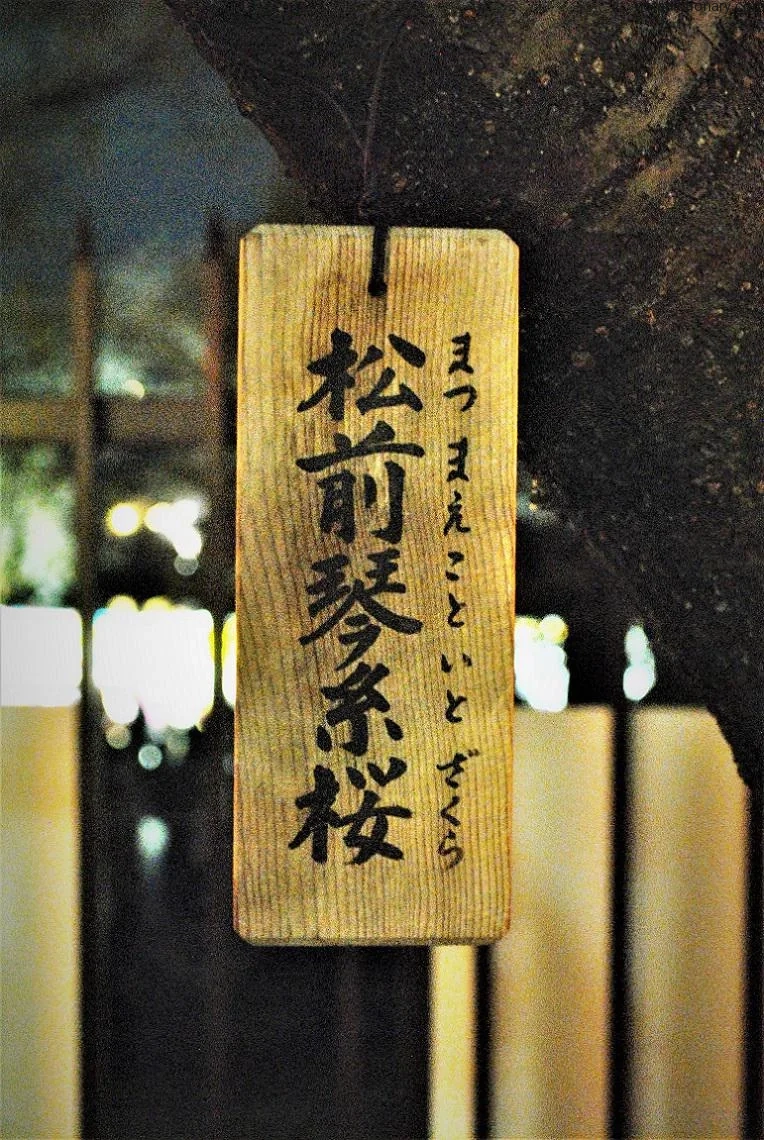 まつまえこといとざくら
松前琴糸桜